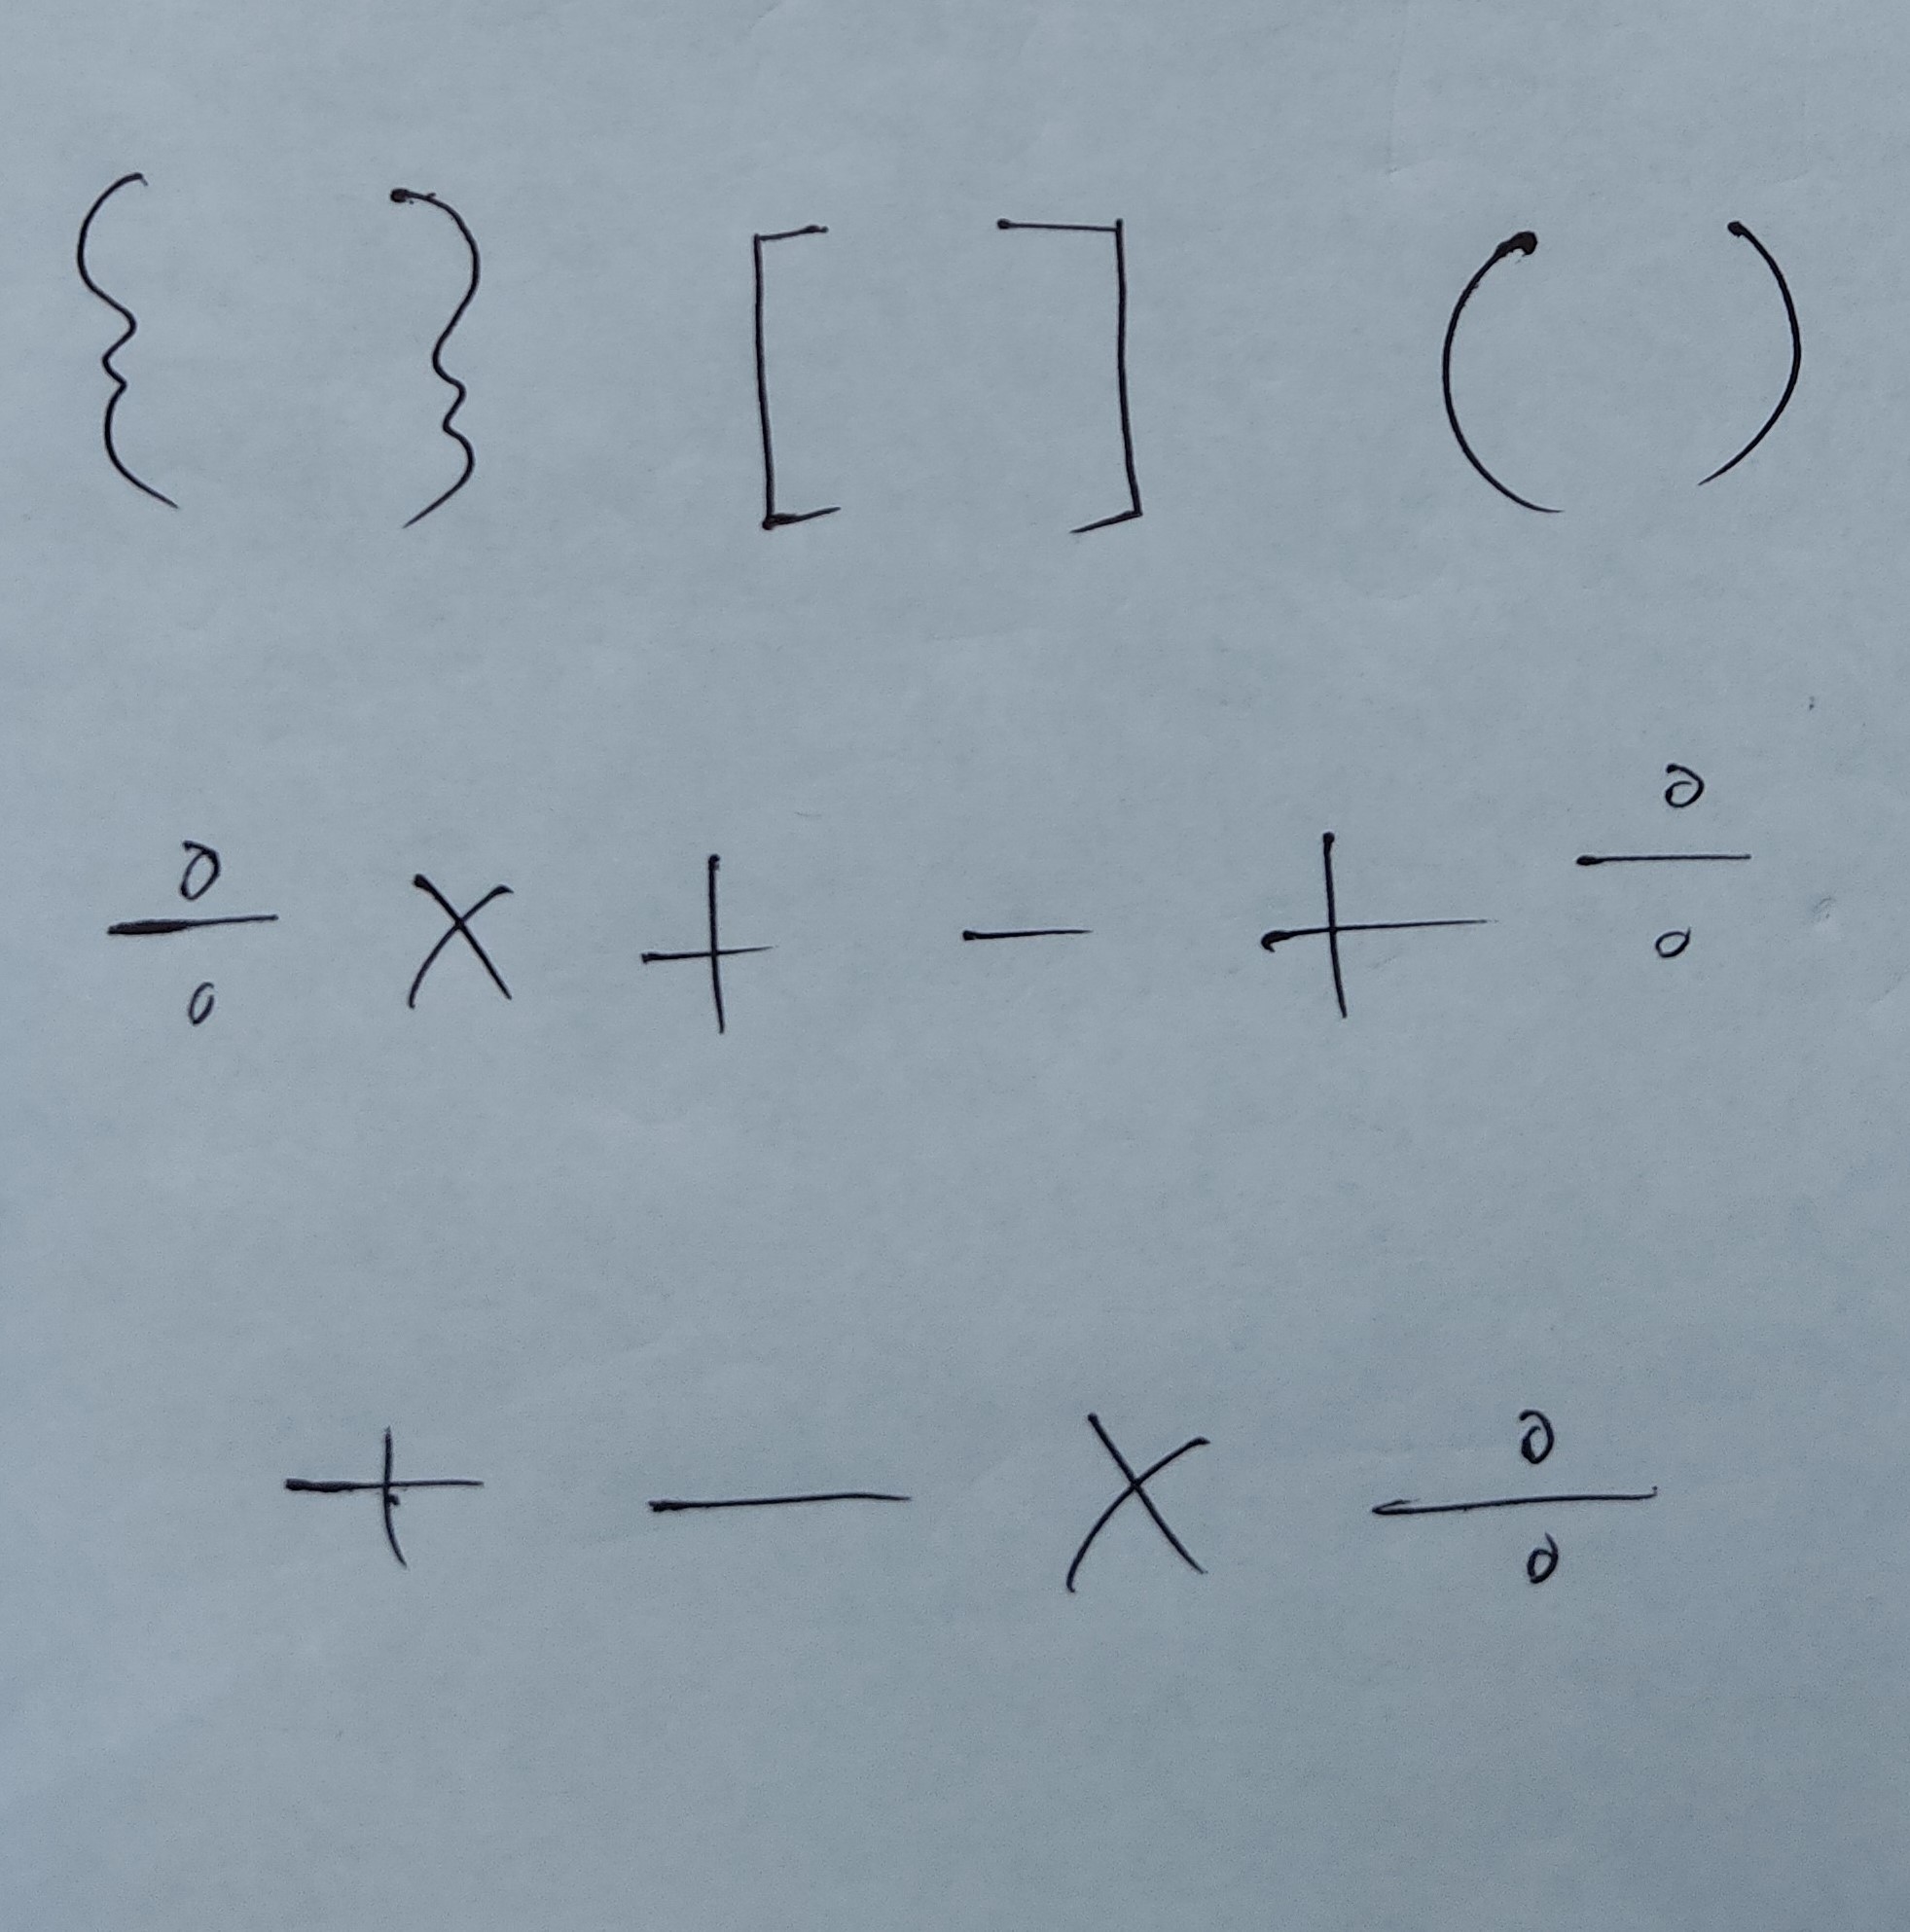 { } [ ] ( )
÷ × + - + ÷
+ — × ÷